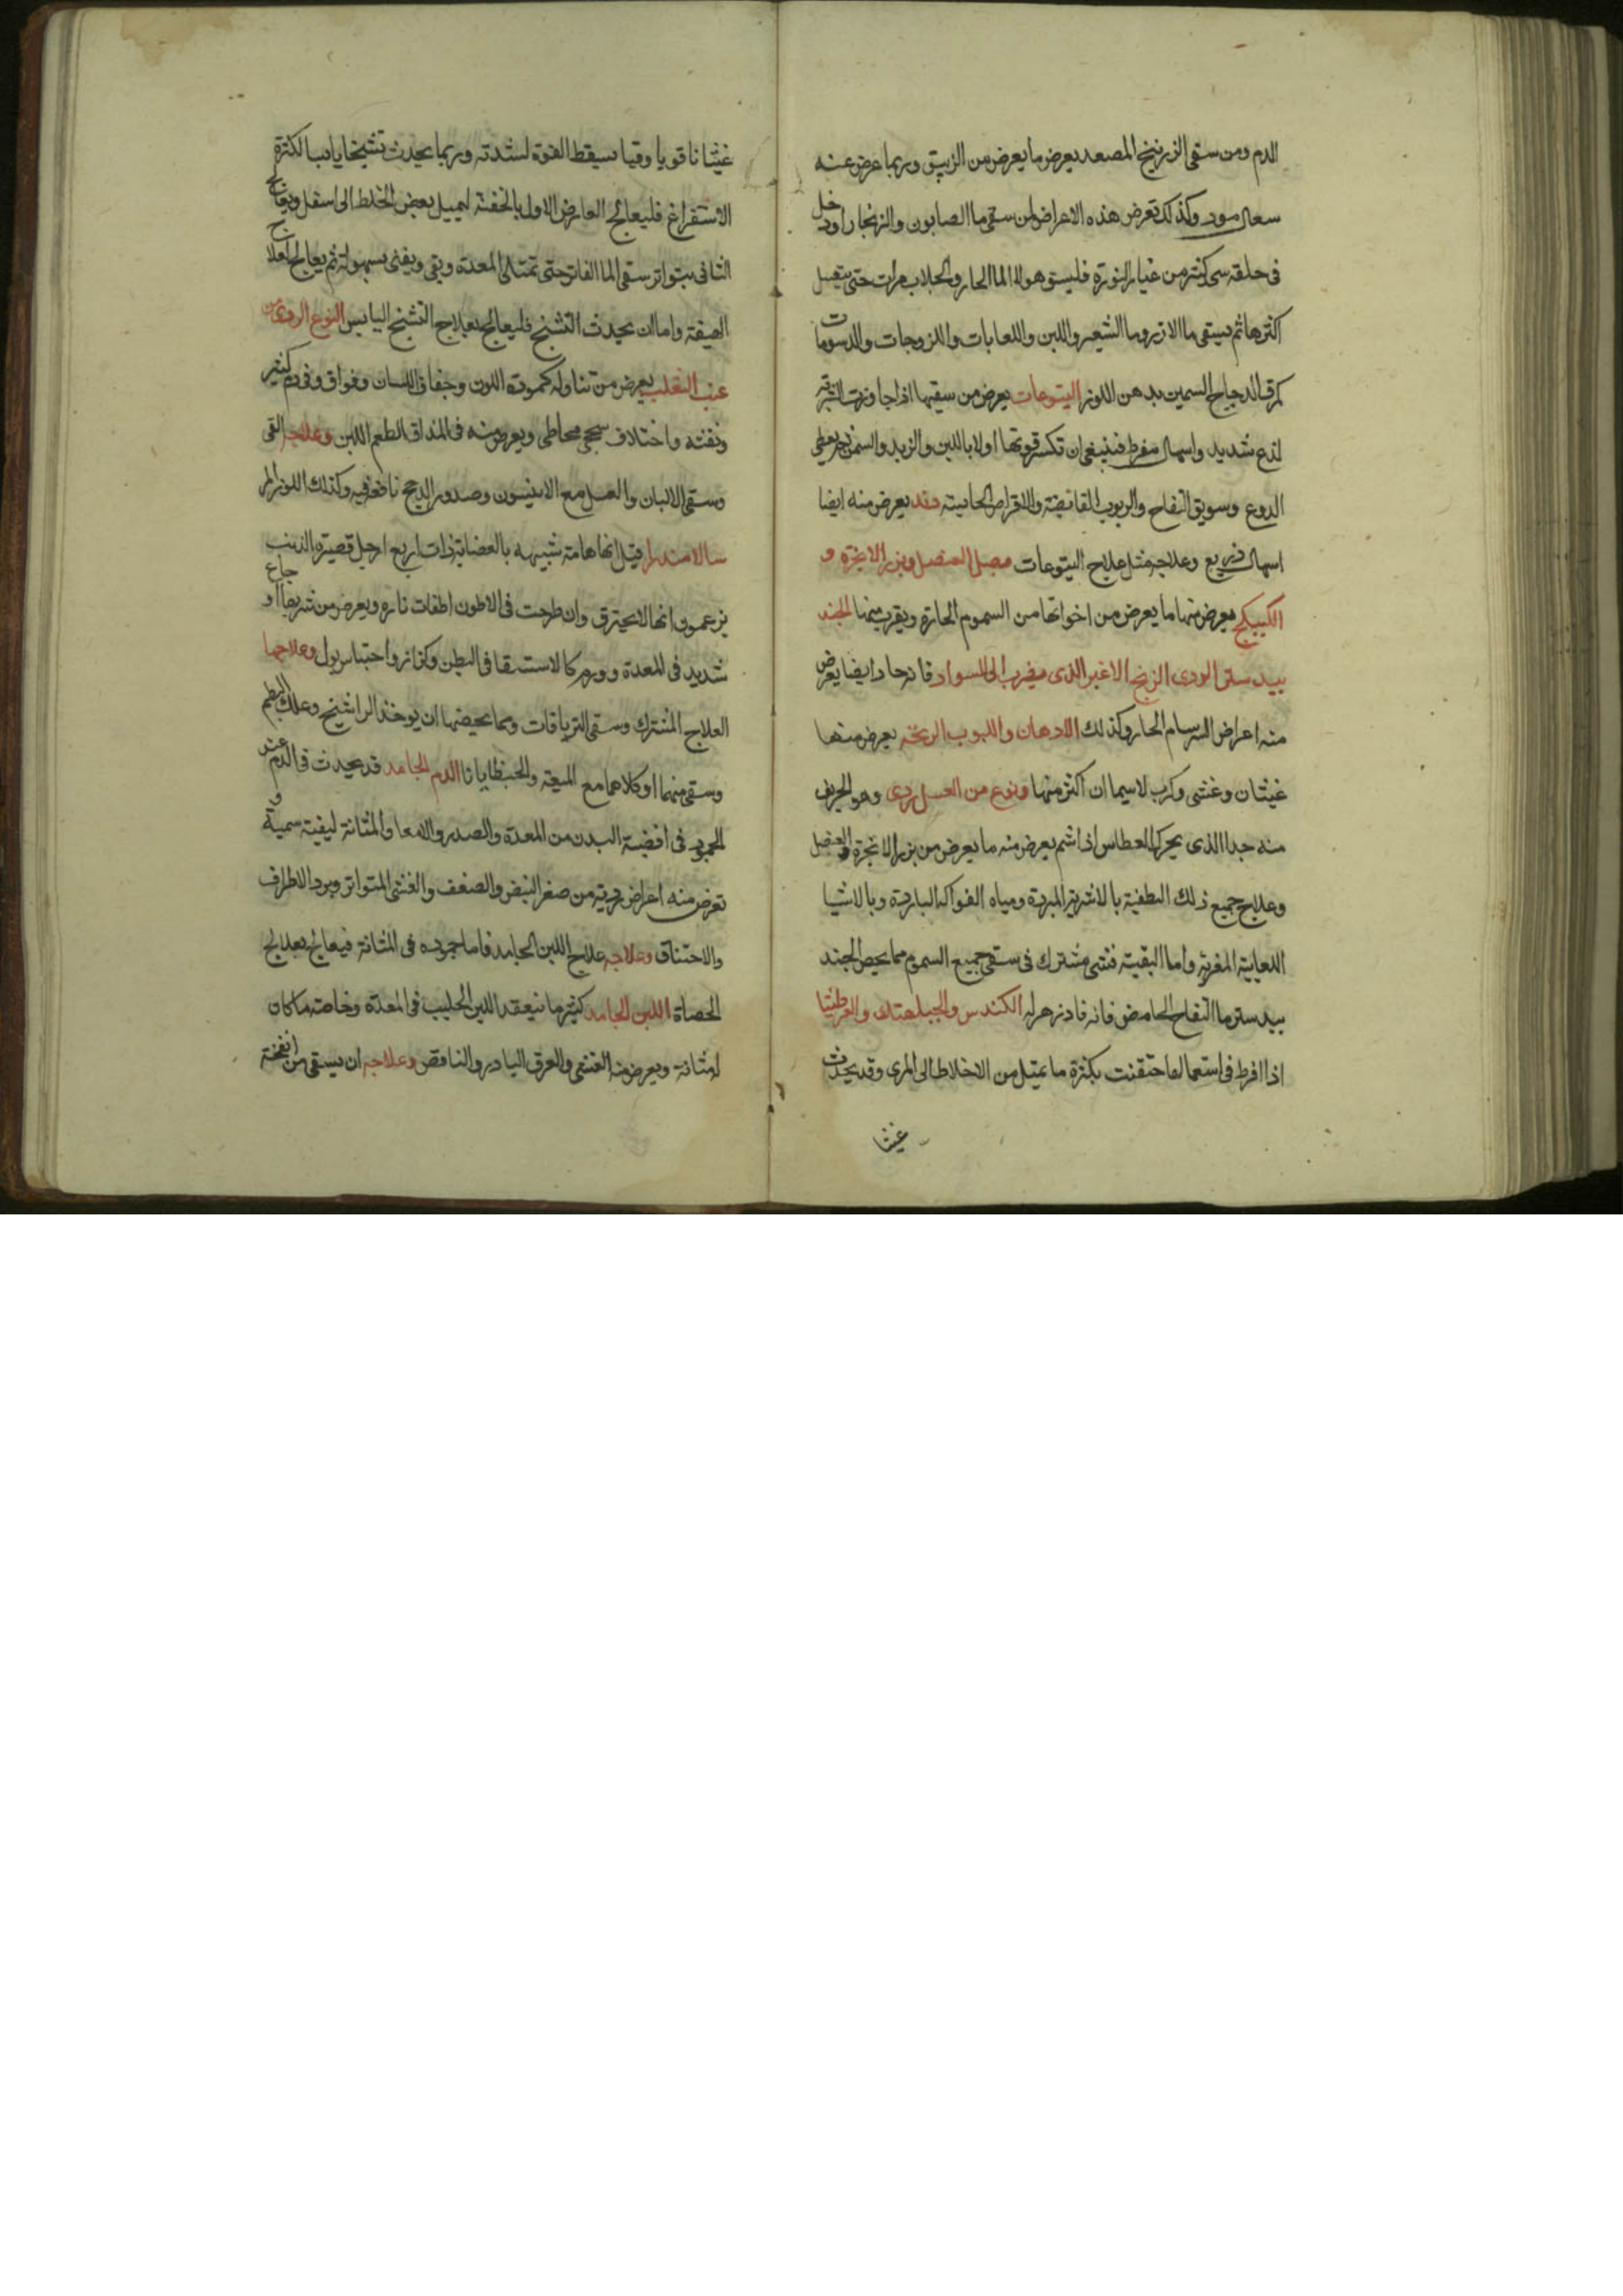 الدم ومن سقى الزرنيخ المصعد يعرض ما يعرض من الزيبق وربما عرض عنه
سعال مود وكذلك تعرض هذه الاعراض لمن سقى ما الصابون والزنجار او دخل
فى حلقه شى كثير من غبار النورة فليسق هولا الما الحار والجلاب مرات حتى يتغسل
اكثرها ثم يسقى ما الارز وما الشعير واللبن واللعابات واللزوجات والدسومات
كمرق الدجاج السمين بدهن اللوز اليتوعات يعرض من سقيها اذا جاوزت الشربة
لذع شديد واسهال مفرط فينبغى ان تكسر قوتها اولا باللبن والزبد والسمن ثم يعطى
الدوع وسويق التفاح والربوب القابضة والاقراص الحابسة دند يعرض منه ايضا
اسهال ذريع وعلاجه مثل علاج اليتوعات بصل العنصل وبزر الانجرة و
الكبيكج يعرض منها ما يعرض من اخواتها من السموم الحارة ويقرب منها الجند
بيدستر الردى الزنخ الاغبر الذى يضرب الى السواد فانه حاد ايضا يعرض
منه اعراض السرسام الحار وكذلك الادهان واللبوب الزنخه يعرض منها
غيثان وغشى وكرب لاسيما ان اكثر منها ونوع من العسل ردى وهو الحريف
منه جدا الذى يحرك العطاس اذا شم يعرض منه ما يعرض من بزر الانجرة والعنصل
وعلاج جميع ذلك التطفية بالاشربة المبردة ومياه الفواكه الباردة وبالاشيا
اللعابية المغرية واما البقية فشى مشترك فى سقى جميع السموم مما يخص الجند
بيدستر ما التفاح الحامض فانه فادزهر له الكندس والجبلهنك والعرطنيثا
اذا افرط فى استعمالها حنقت بكثرة ما يميل من الاخلاط الى المرى وقد يحدث
غيثا
غيثانا قويا وقيا يسقط القوة لشدته وربما يحدث تشنجا يابسا لكثرة
الاستفراغ فليعالج العارض الاول بالحقنة ليميل بعض الخلط الى اسفل ويعالج
الثانى بتواتر سقى الما الفاتر حتى تمتلى المعدة ويقى ويفنى بسهولة ثم يعالج بعلاج
الهيضة واما ان يحدث التشنج فليعالج بعلاج التشنج اليابس النوع الردى من
عنب الثعلب يعرض من تناوله كموده اللون وجفاف اللسان وفواق وقى دم كثير
ونفثه واختلاف سحجى مخاطى ويعرض منه فى المذاق الطعم اللبن وعلاجه القى
وسقى الالبان والعسل مع الانيسون وصدور الدجج نافعة فيه وكذلك اللوز المر
سالامندرا قيل انها هامة شبيهه بالعضاية ذات اربع ارجل قصيرة الذنب
يزعمون انها لا تحترق وان طرحت فى الاطون اطفات ناره ويعرض من شربها اوجاع
شديد فى المعدة وورم كالاستسقا فى البطن وكزاز واحتباس بول وعلاجها
العلاج المشترك وسقى الترياقات ومما يخصها ان يوخذ الراتينج وعلك البطم
وسقى منهما او كلاهما مع الميعة والجنطيانا الدم الجامد قد يحدث فى الدم عند
الجمود فى افضية البدن من المعدة والصدر والامعا والمثانة كيفية سمية و
تعرض منه اعراض ردية من صغر النبض والضعف والغشى المتواتر وبرد الاطراف
والاختناق وعلاجه علاج اللبن الجامد فاما جموده فى المثانة فيعالج بعلاج
الحصاة اللبن الجامد كثير ما ينعقد اللبن الحليب فى المعدة وخاصة ما كان
لمثانة ويعرض منه الغشى والعرق البادر والنافض وعلاجه ان يسقى من انفحة